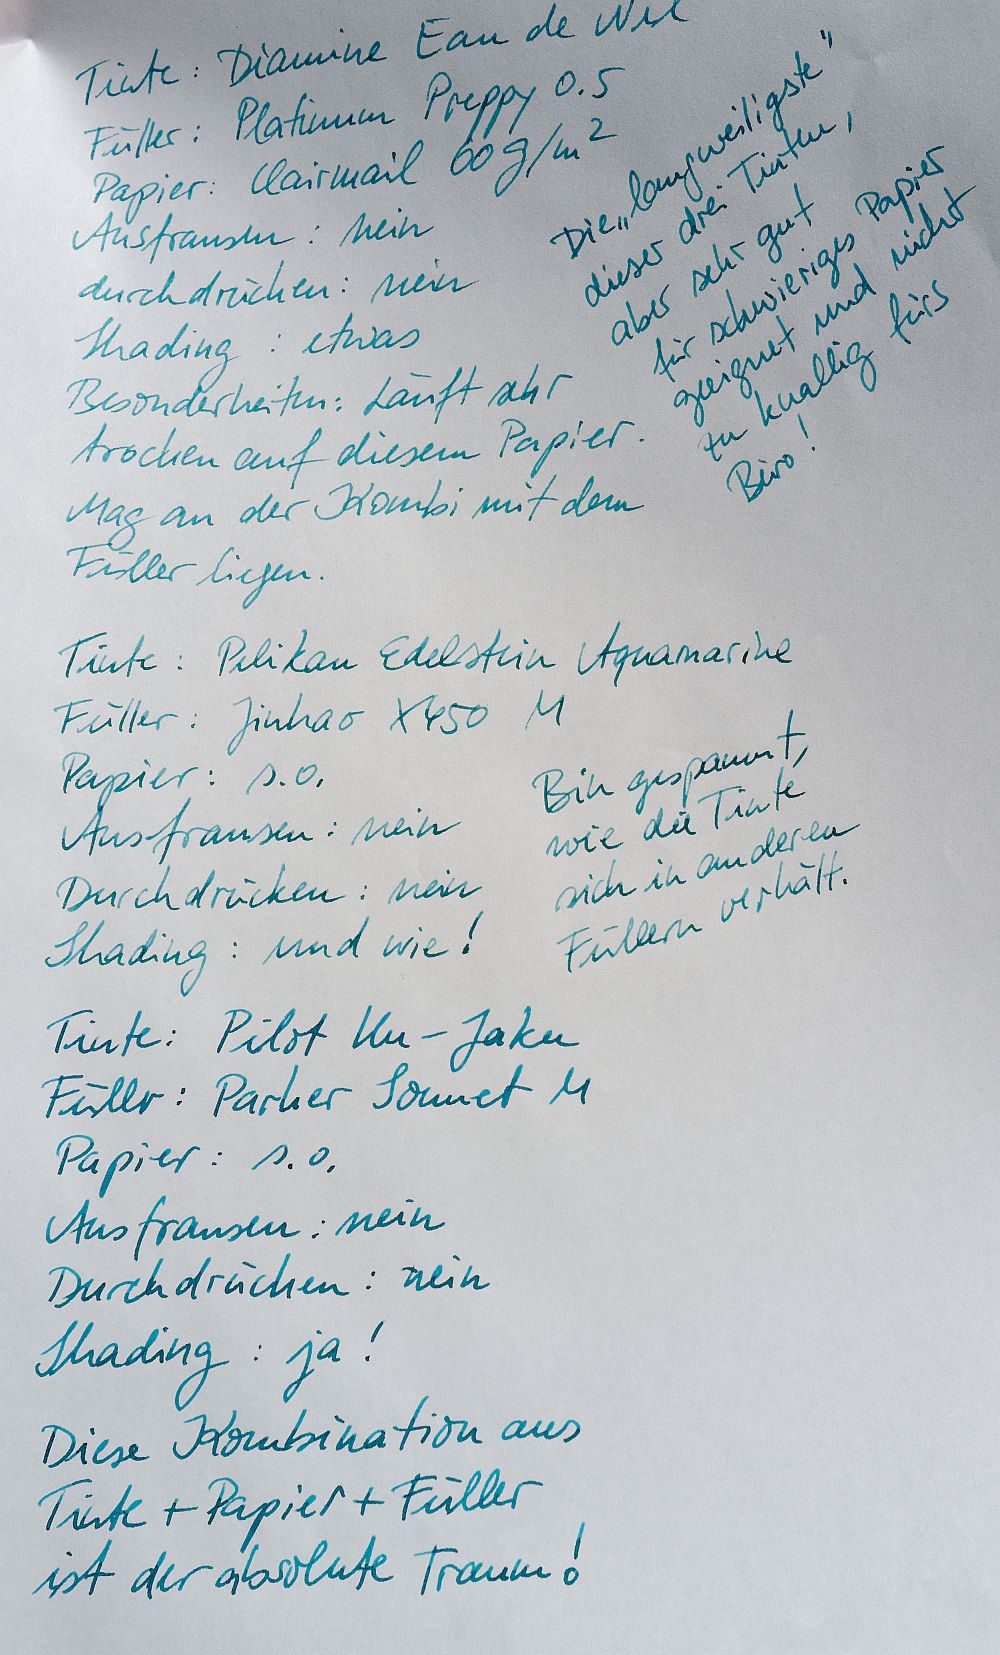 Tinte: Diamine Eau de Nil
Füller: Platinum Preppy 0.5
Papier: Clairmail 60g/m²
Ausfransen: nein
durchdrücken: nein
Shading: etwas
Besonderheiten: Läuft sehr
trocken auf diesem Papier.
Mag an der Kombi mit dem
Füller liegen.
Die „langweiligste"
dieser drei Tinten,
aber sehr gut
für schwieriges Papier
geeignet und nicht
zu knallig fürs
Büro!
Tinte: Pelikan Edelstein Aquamarine
Füller: Jinhao X450 M
Papier: s.o.
Ausfransen: nein
Durchdrücken: nein
Shading: und wie!
Bin gespannt,
wie die Tinte
sich in anderen
Füllern verhält.
Tinte: Pilot Ku-Jaku
Füller: Parker Sonnet M
Papier: s.o.
Ausfransen: nein
Durchdrücken: nein
Shading: ja!
Diese Kombination aus
Tinte + Papier + Füller
ist der absolute Traum!